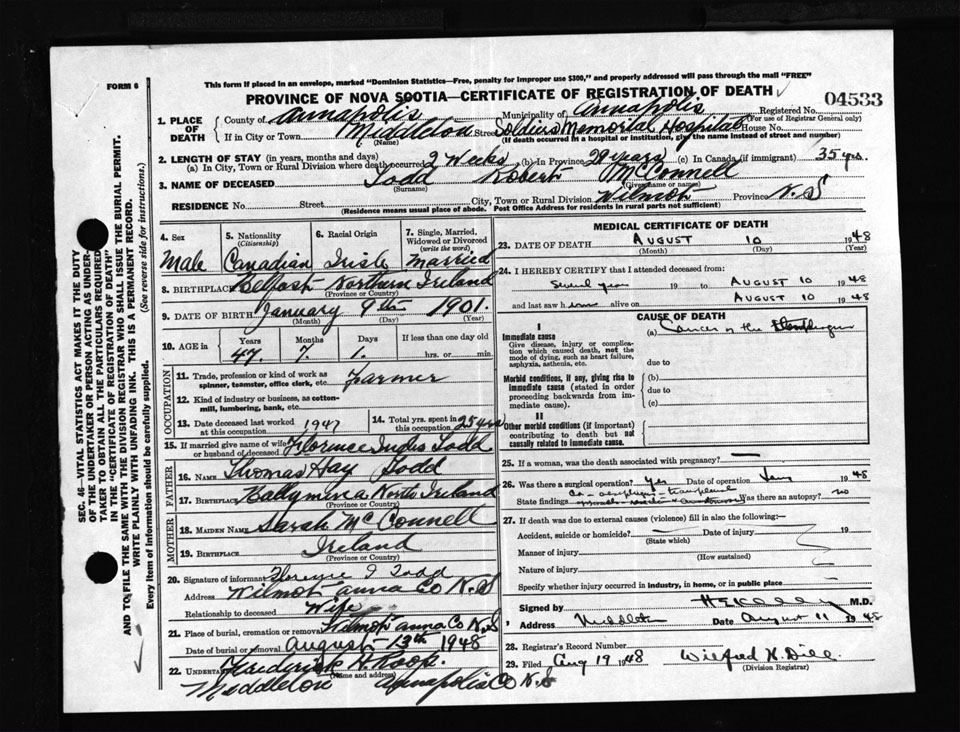 FORM 6
This form if placed in an envelope, marked "Dominion Statistics—Free, penalty for improper use $300," and properly addressed will pass through the mail "FREE"
PROVINCE OF NOVA SCOTIA—CERTIFICATE OF REGISTRATION OF DEATH
Registered No. 04533
(For use of Registrar General only)
1. PLACE OF DEATH County of Annapolis Municipality of Annapolis
If in City or Town Middleton Street Soldiers Memorial Hospital House No.
(Name) (If death occurred in a hospital or institution, give the name instead of street and number)
2. LENGTH OF STAY (in years, months and days)
(a) In City, Town or Rural Division where death occurred 2 Weeks (b) In Province 29 years (c) In Canada (if immigrant) 35 yrs.
3. NAME OF DECEASED Todd Robert McConnell
(Surname) (Given name or names)
RESIDENCE No. Street City, Town or Rural Division Wilmot Province N.S
(Residence means usual place of abode. Post Office Address for residents in rural parts not sufficient)
4. Sex Male
5. Nationality (Citizenship) Canadian
6. Racial Origin Irish
7. Single, Married, Widowed or Divorced (write the word) Married
8. BIRTHPLACE Belfast Northern Ireland
(Province or Country)
9. DATE OF BIRTH January 9th 1901.
(Month) (Day) (Year)
10. AGE in Years Months Days If less than one day old
47. 7. 1. hrs. or min.
OCCUPATION
11. Trade, profession or kind of work as spinner, teamster, office clerk, etc. Farmer
12. Kind of industry or business, as cotton-mill, lumbering, bank, etc.
13. Date deceased last worked at this occupation 1947
14. Total yrs. spent in this occupation 25 yrs
15. If married give name of wife or husband of deceased Florence Ingles Todd
FATHER
16. NAME Thomas Hay Todd
17. BIRTHPLACE Ballymena North Ireland
(Province or Country)
MOTHER
18. MAIDEN NAME Sarah McConnell
19. BIRTHPLACE Ireland
(Province or Country)
20. Signature of informant Florence I Todd
Address Wilmot Anna Co N.S
Relationship to deceased Wife
21. Place of burial, cremation or removal Wilmot Anna Co N.S
Date of burial or removal August 13th 1948
22. UNDERTAKER Frederick H Roop.
(Name and address)
Middleton Annapolis Co N.S
MEDICAL CERTIFICATE OF DEATH
23. DATE OF DEATH AUGUST 10 1948
(Month) (Day) (Year)
24. I HEREBY CERTIFY that I attended deceased from:
19 to AUGUST 10 1948
and last saw h alive on AUGUST 10 1948
CAUSE OF DEATH
I
Immediate cause
Give disease, injury or complication which caused death, not the mode of dying, such as heart failure, asphyxia, asthenia, etc.
(a) Cancer of the
due to
Morbid conditions, if any, giving rise to immediate cause (stated in order proceeding backwards from immediate cause).
(b)
due to
(c)
II
Other morbid conditions (if important) contributing to death but not causally related to immediate cause.
25. If a woman, was the death associated with pregnancy? —
26. Was there a surgical operation? yes Date of operation 1948
State findings Was there an autopsy? no
27. If death was due to external causes (violence) fill in also the following:—
Accident, suicide or homicide? Date of injury 19
(State which)
Manner of injury
(How sustained)
Nature of injury
Specify whether injury occurred in industry, in home, or in public place
Signed by M.D.
Address Middleton Date August 11 1948
28. Registrar's Record No.
29. Filed Aug 19 1948 Wilfred H. Dill
(Division Registrar)
SEC. 46—VITAL STATISTICS ACT MAKES IT THE DUTY
OF THE UNDERTAKER OR PERSON ACTING AS UNDER-
TAKER TO OBTAIN ALL THE PARTICULARS REQUIRED
IN THE "CERTIFICATE OF REGISTRATION OF DEATH"
AND TO FILE THE SAME WITH THE DIVISION REGISTRAR WHO SHALL ISSUE THE BURIAL PERMIT.
WRITE PLAINLY WITH UNFADING INK. THIS IS A PERMANENT RECORD.
Every item of information should be carefully supplied. (See reverse side for instructions.)